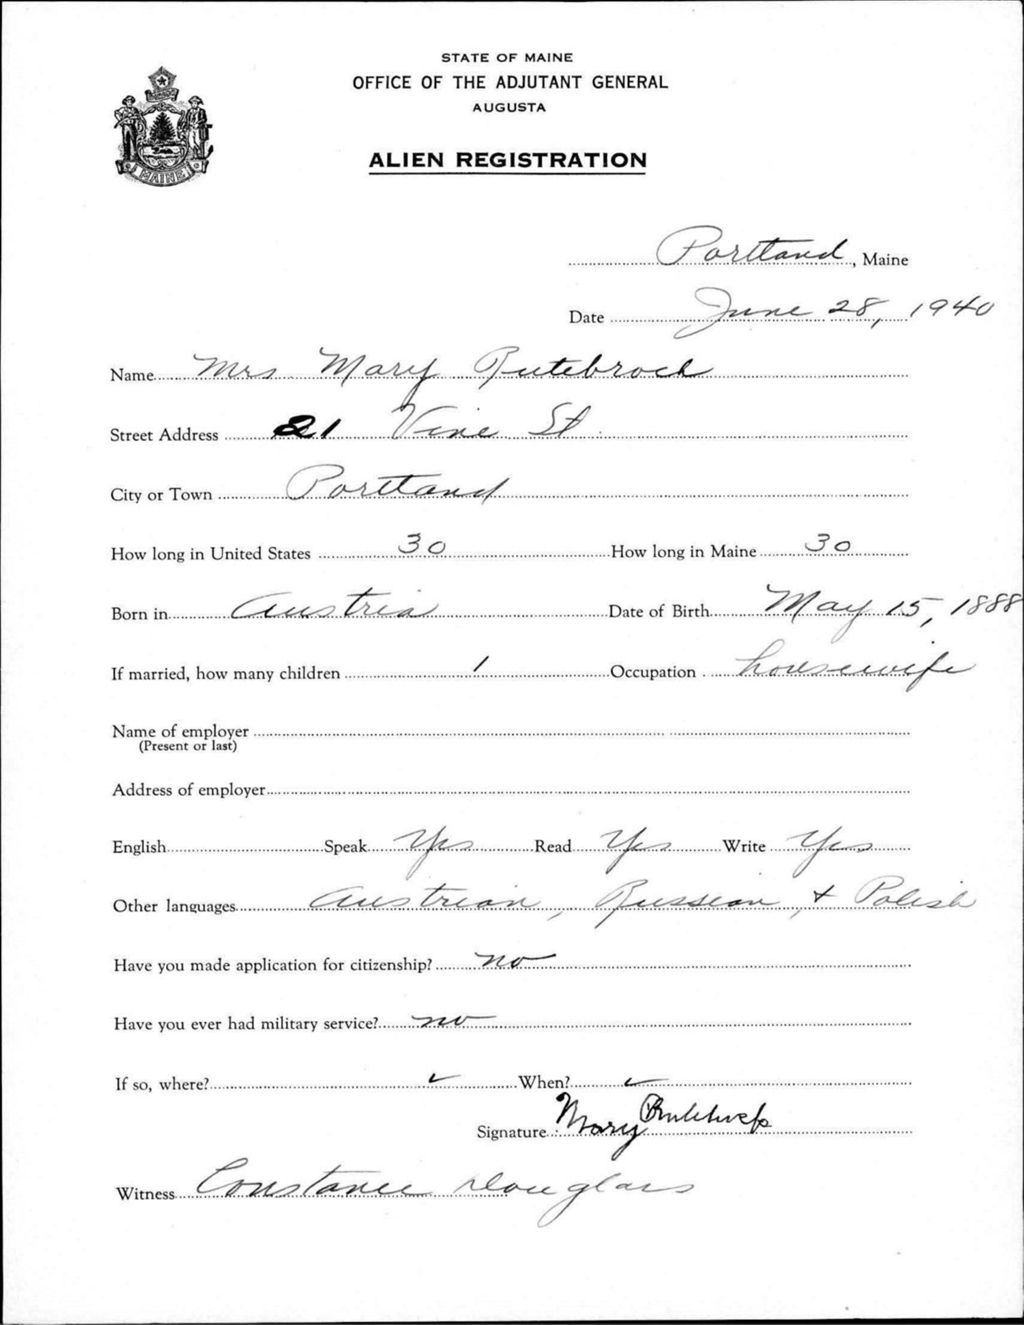 STATE OF MAINE
OFFICE OF THE ADJUTANT GENERAL
AUGUSTA
ALIEN REGISTRATION
MAINE
Portland, Maine
Date June 28, 1940
Name Mrs Mary Rutebrock
Street Address 21 Vine St.
City or Town Portland
How long in United States 30 How long in Maine 30
Born in Austria Date of Birth May 15, 1888
If married, how many children 1 Occupation housewife
Name of employer
(Present or last)
Address of employer
English Speak Yes Read Yes Write Yes
Other languages Austrian, Russian, + Polish
Have you made application for citizenship? no
Have you ever had military service? no
If so, where? ✓ When? ✓
Signature Mary
Witness Constance Douglass